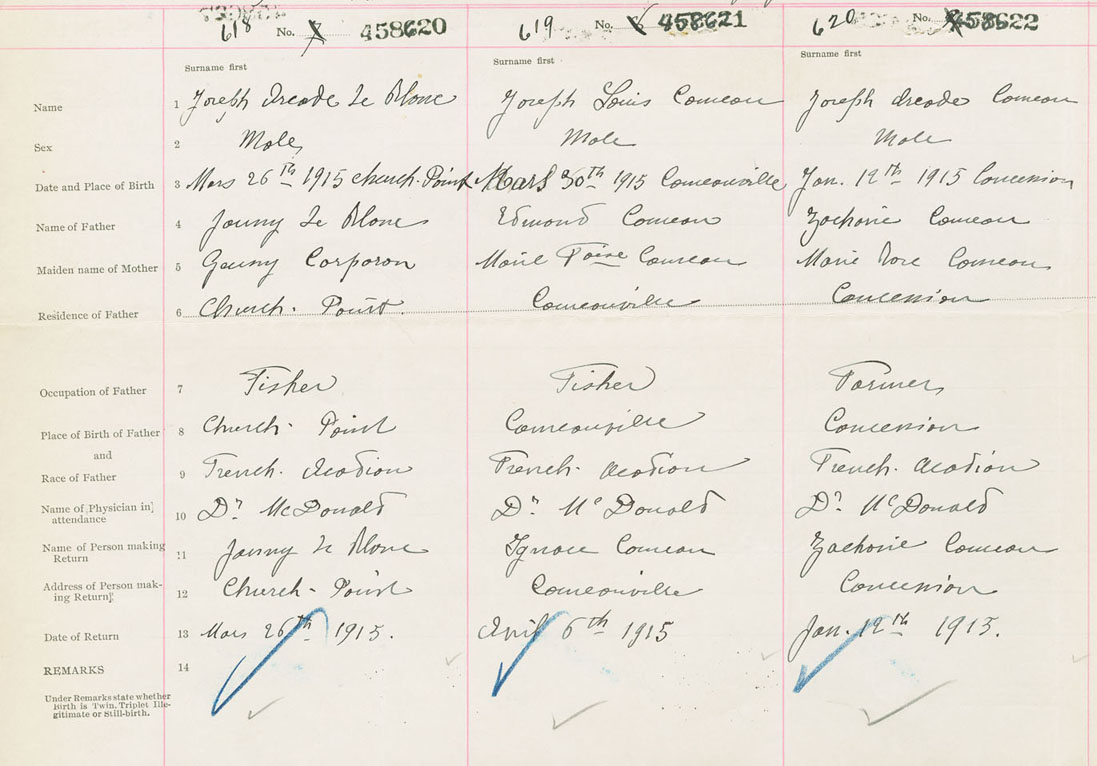 618 No. 458620 619 No. 458621 620 No. 458622
Surname first Surname first Surname first
Name 1 Joseph Arcade Le Blanc Joseph Louis Comeau Joseph Arcade Comeau
Sex 2 Male Male Male
Date and Place of Birth 3 Mars 26th 1915 Church-Point Mars 30th 1915 Comeauville Jan. 12th 1915 Concession
Name of Father 4 Le Blanc Edmond Comeau Zacharie Comeau
Maiden name of Mother 5 Corporon Marie Comeau Marie Rose Comeau
Residence of Father 6 Church-Point. Comeauville Concession
Occupation of Father 7 Fisher Fisher Farmer
Place of Birth of Father 8 Church-Point Comeauville Concession
and
Race of Father 9 French-Acadian French-Acadian French-Acadian
Name of Physician in] attendance 10 Dr McDonald Dr McDonald Dr McDonald
Name of Person making Return 11 Le Blanc Ignace Comeau Zacharie Comeau
Address of Person mak- ing Return 12 Church-Point Comeauville Concession
Date of Return 13 Mars 26th 1915. April 6th 1915 Jan. 12th 1915.
REMARKS 14
Under Remarks state whether
Birth is Twin, Triplet Ille-
gitimate or Still-birth.